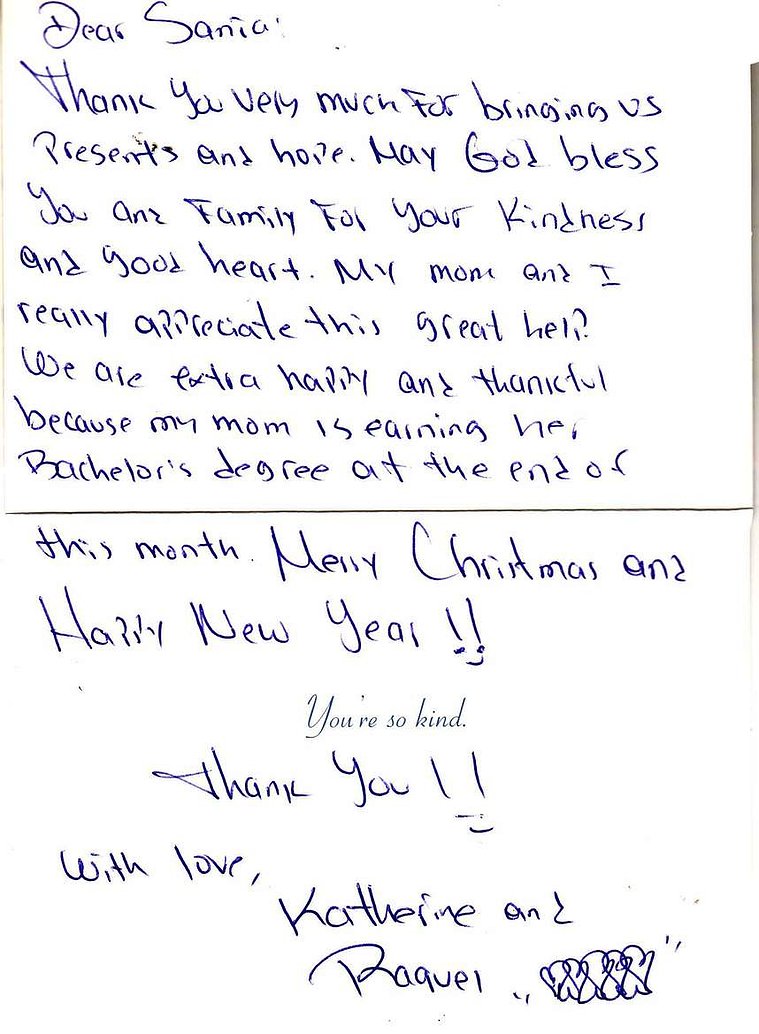 Dear Santa:
Thank You very much For bringing us
Presents and hope. May God bless
You and Family For Your Kindness
and good heart. My mom and I
really appreciate this great help
We are extra happy and thankful
because my mom is earning her
Bachelor's degree at the end of
this month. Merry Christmas and
Happy New Year!!
You're so kind.
Thank You!!
With love,
Katherine and
Raquel